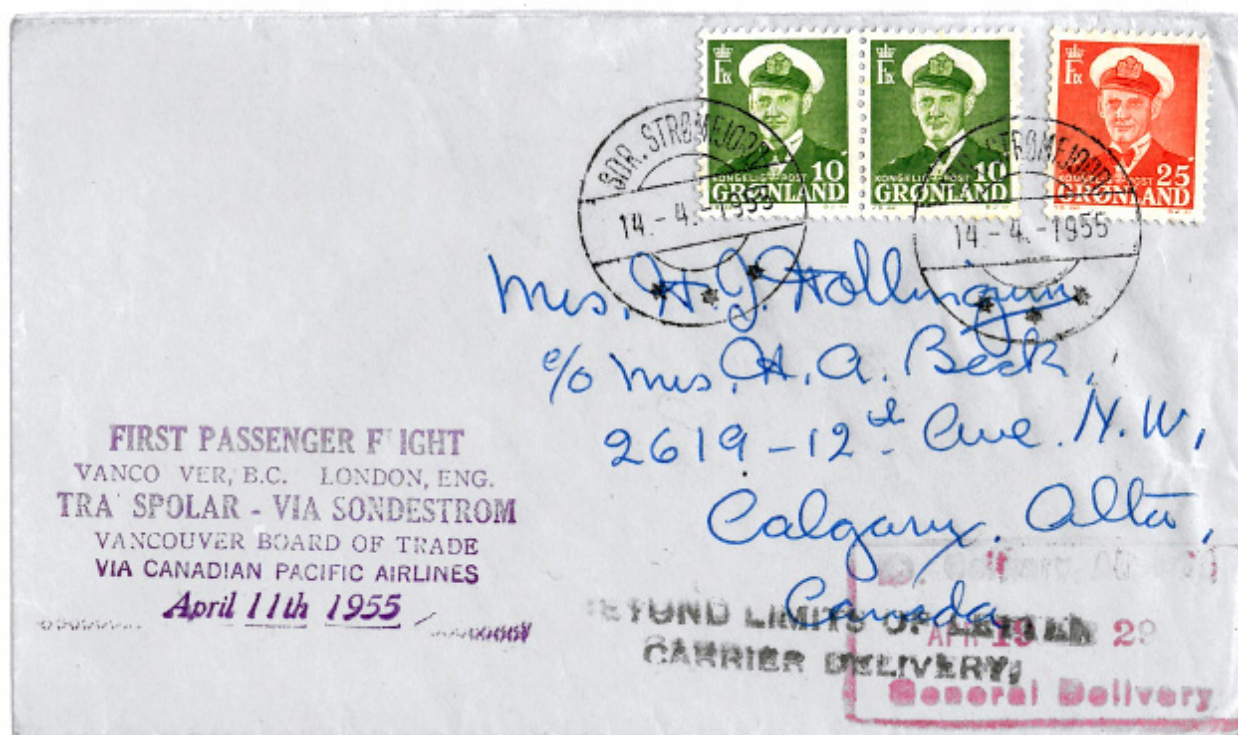 KONGELIG POST 10
GRØNLAND
KONGELIG POST 10
GRØNLAND
KONGELIG POST 25
GRØNLAND
SDR. STRØMFJORD
14.-4.-1955
STRØMFJORD
14.-4.-1955
Mrs. H. J.
c/o Mrs. H. A. Beck,
2619-12th Ave. N.W,
Calgary. Alta,
Canada
FIRST PASSENGER F IGHT
VANCO VER, B.C. LONDON, ENG.
TRA SPOLAR - VIA SONDESTROM
VANCOUVER BOARD OF TRADE
VIA CANADIAN PACIFIC AIRLINES
April 11th 1955
EYOND LIMITS OF LETTER
CARRIER DELIVERY,
APR 19 29
General Delivery